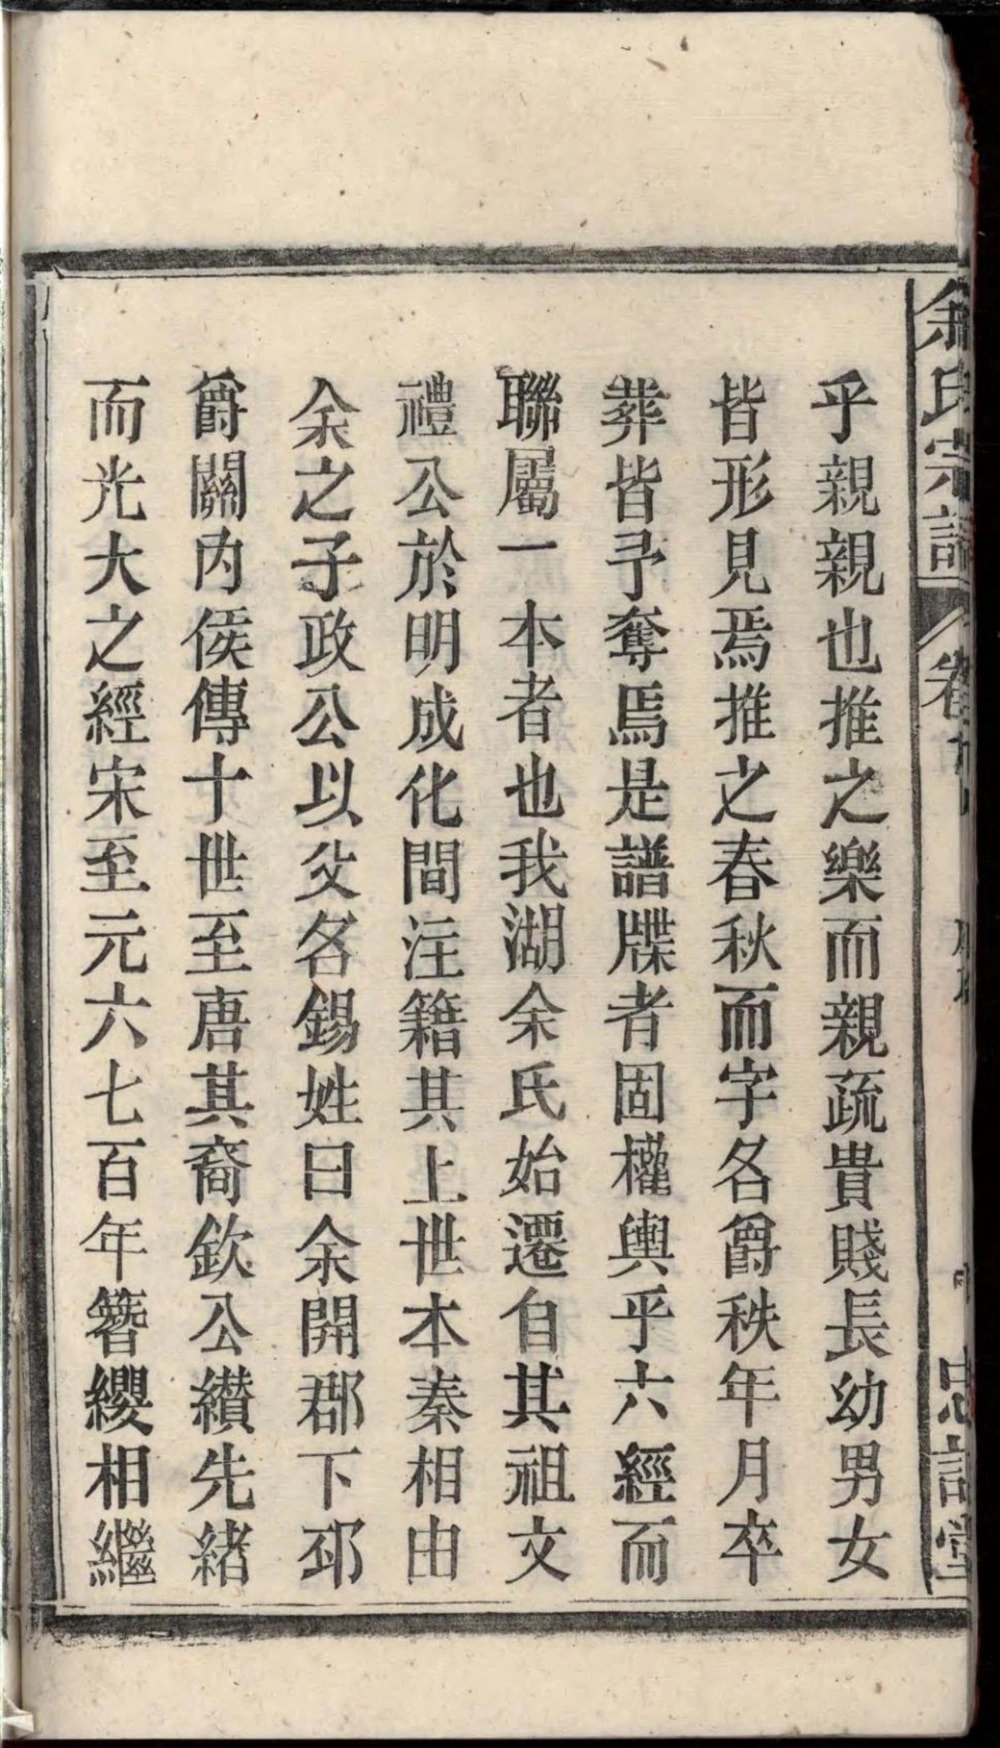 余氏宗譜
卷
乎親親也推之樂而親疏貴賤長幼男女
皆形見焉推之春秋而字名爵秩年月卒
葬皆予奪焉是譜牒者固權輿乎六經而
聯屬一本者也我湖余氏始遷自其祖文
禮公於明成化間注籍其上世本秦相由
余之子政公以父名錫姓曰余開郡下邳
爵關內侯傳十世至唐其裔欽公纘先緒
而光大之經宋至元六七百年簪纓相繼